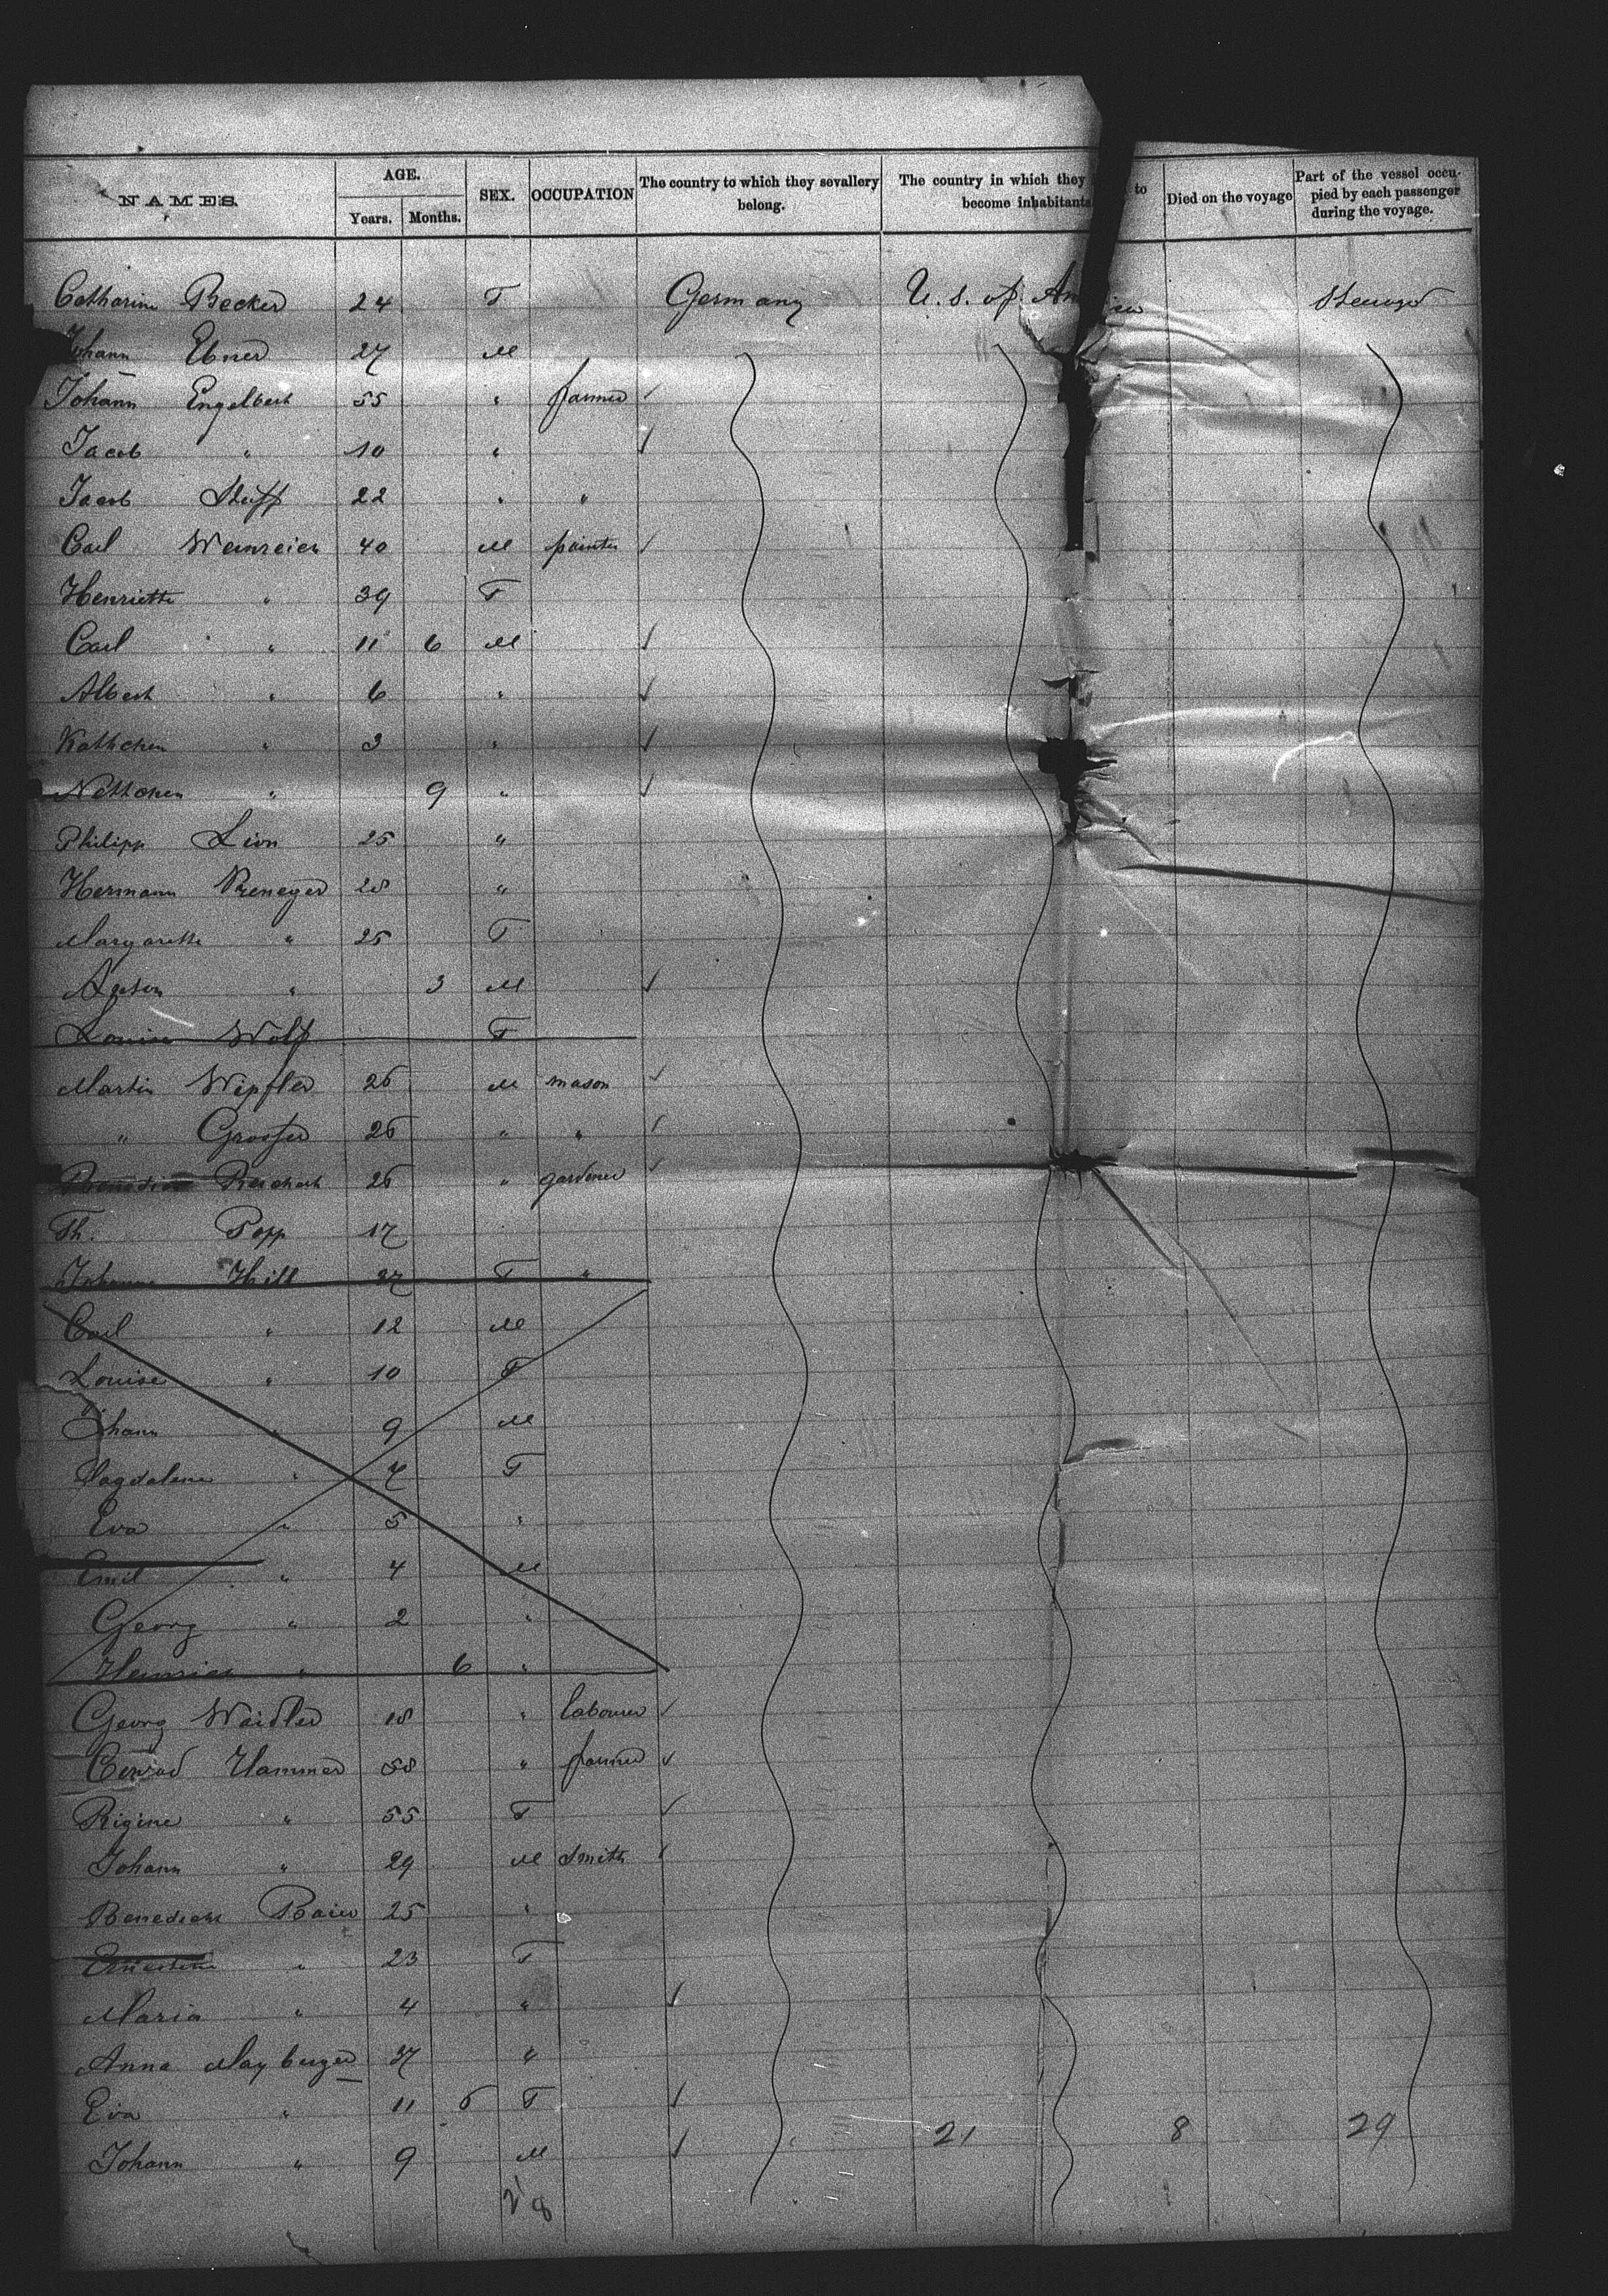 NAMES. AGE. SEX. OCCUPATION The country to which they sevallery belong. The country in which they to become inhabitants Died on the voyage Part of the vessel occupied by each passenger during the voyage.
Years. Months.
Catharine Becker 24 F Germany U. S. of Am
Johann Ebner 27 M
Johann Engelbert 55 " farmer ✓
Jacob " 10 " ✓
Jacob 22 " "
Carl Weinreich 40 M painter ✓
Henriette " 39 F
Carl " 11 6 M ✓
Albert " 6 " ✓
Kathchen " 3 " ✓
Nettchen " 9 " ✓
Philipp Lion 25 "
Hermann 28 "
Margarethe " 25 F
Anton " 3 M ✓
Louise Wolf F
Martin Wipfler 26 M mason ✓
" Grosser 26 " " ✓
Reichert 26 " gardener ✓
Th. Popp 17
Johanna Hill 37 F "
Carl " 12 M
Louise " 10 F
Johann " 9 M
Magdalena " 7 F
Eva " 5 "
Emil " 4 M
Georg " 2 "
Heinrich " 6 "
Georg Waidler 18 " labourer ✓
Conrad Hammer 58 " farmer ✓
Rigine " 55 F ✓
Johann " 29 M Smith ✓
Benedicht Baier 25 "
" 23 F
Maria " 4 " ✓
Anna Mayberger 37 "
Eva " 11 6 F ✓
Johann " 9 M ✓ 21 8 29
28